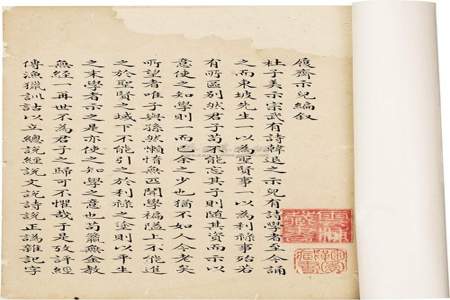 履齋示兒編敘
杜子美示宗武有詩韓退之示兒有詩學者至今誦
之而東坡先生一以為聖賢事一以為利祿事殆若
有所區別然君子苟不能忘其子則隨其資而示以
意使之如學則一而已余之少也猶不如人今老矣
所望者唯子與孫然懶惰無匹聞學褊隘上不能進
之於聖賢之域下不能引之於利祿之塗則以平生
之末學者示之是亦使之如學之意也苟籯無金教
無經一再世不為君子之歸可不懼哉于是考評經
傳漁獵訓詁以立總說經說文說詩說正譌雜記字